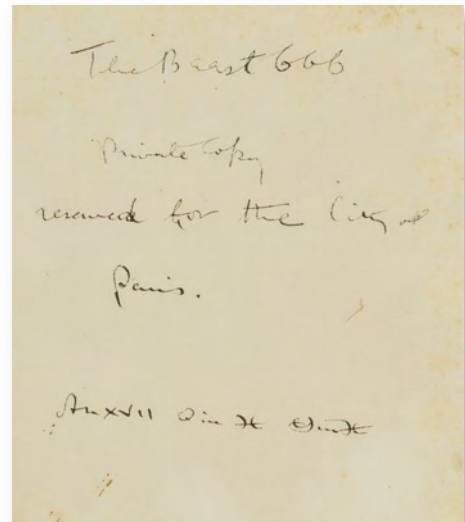 The Beast 666
Private Copy
reserved for the City of
Paris.
An XVII ☉ in ♓ in ♓